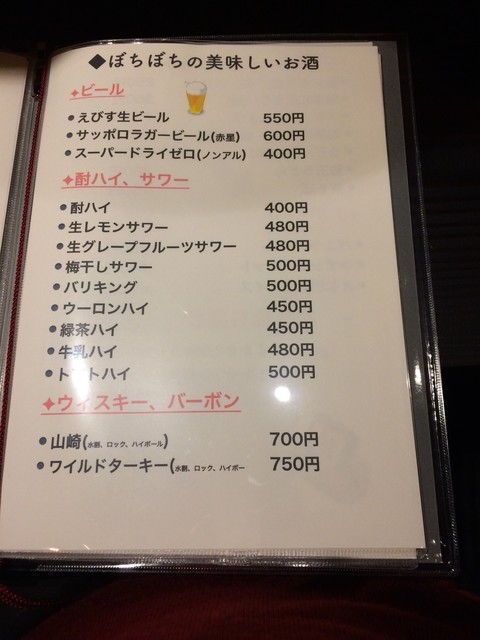 ◆ぼちぼちの美味しいお酒
✦ビール
●えびす生ビール 550円
●サッポロラガービール(赤星) 600円
●スーパードライゼロ(ノンアル) 400円
✦酎ハイ、サワー
●酎ハイ 400円
●生レモンサワー 480円
●生グレープフルーツサワー 480円
●梅干しサワー 500円
●バリキング 500円
●ウーロンハイ 450円
●緑茶ハイ 450円
●牛乳ハイ 480円
●トマトハイ 500円
✦ウィスキー、バーボン
●山崎(水割、ロック、ハイボール) 700円
●ワイルドターキー(水割、ロック、ハイボー 750円